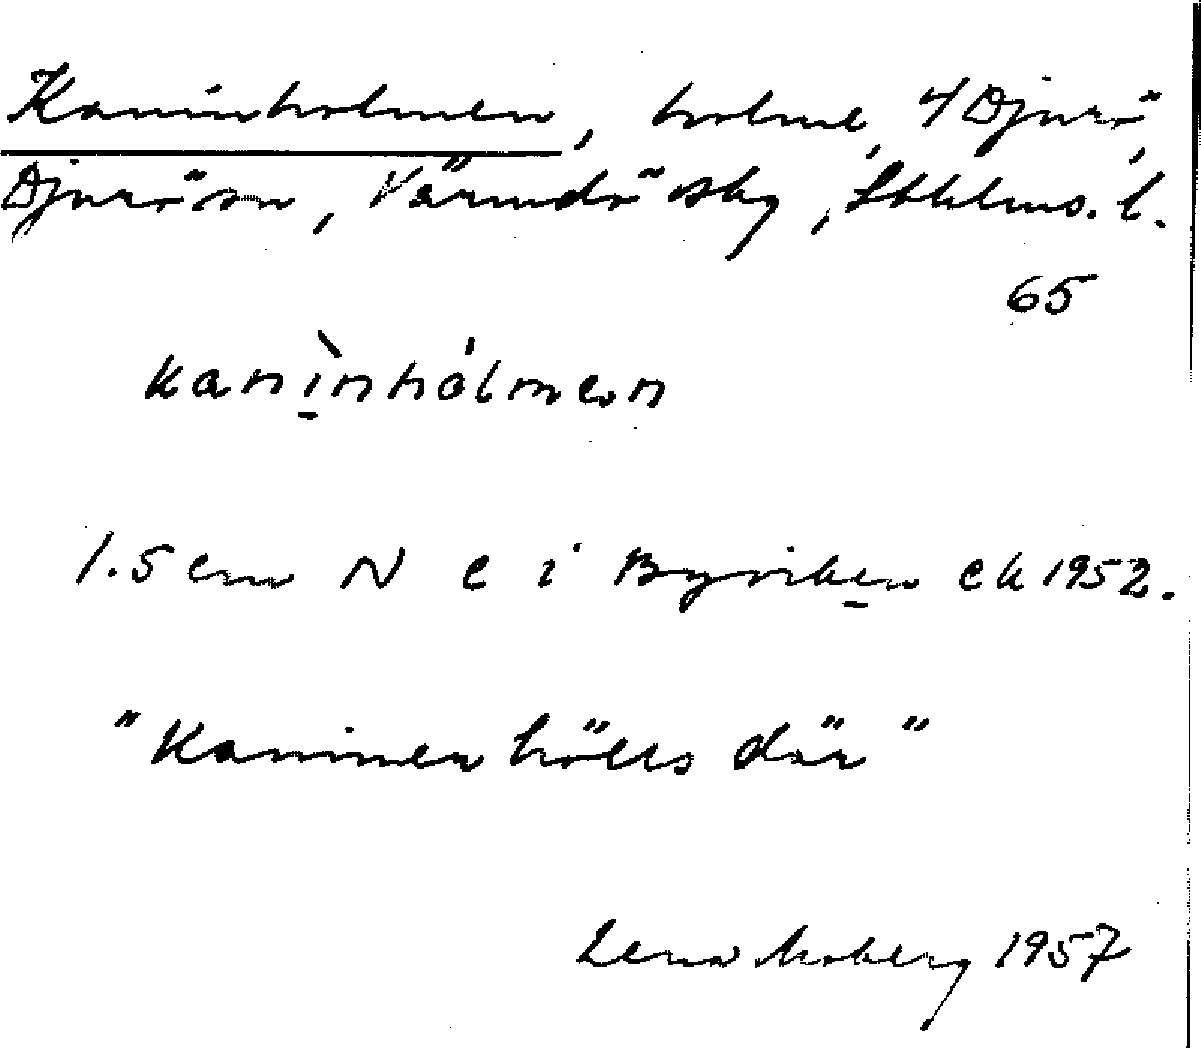 Kaninholmen, holme, 4 Djurö,
Djurö sn, Värmdö skg, Sthlms. l.
65
kanìnhólmen
1.5 cm N e i Byviken ek 1952.
"Kaniner hölls där"
Lena Moberg 1957